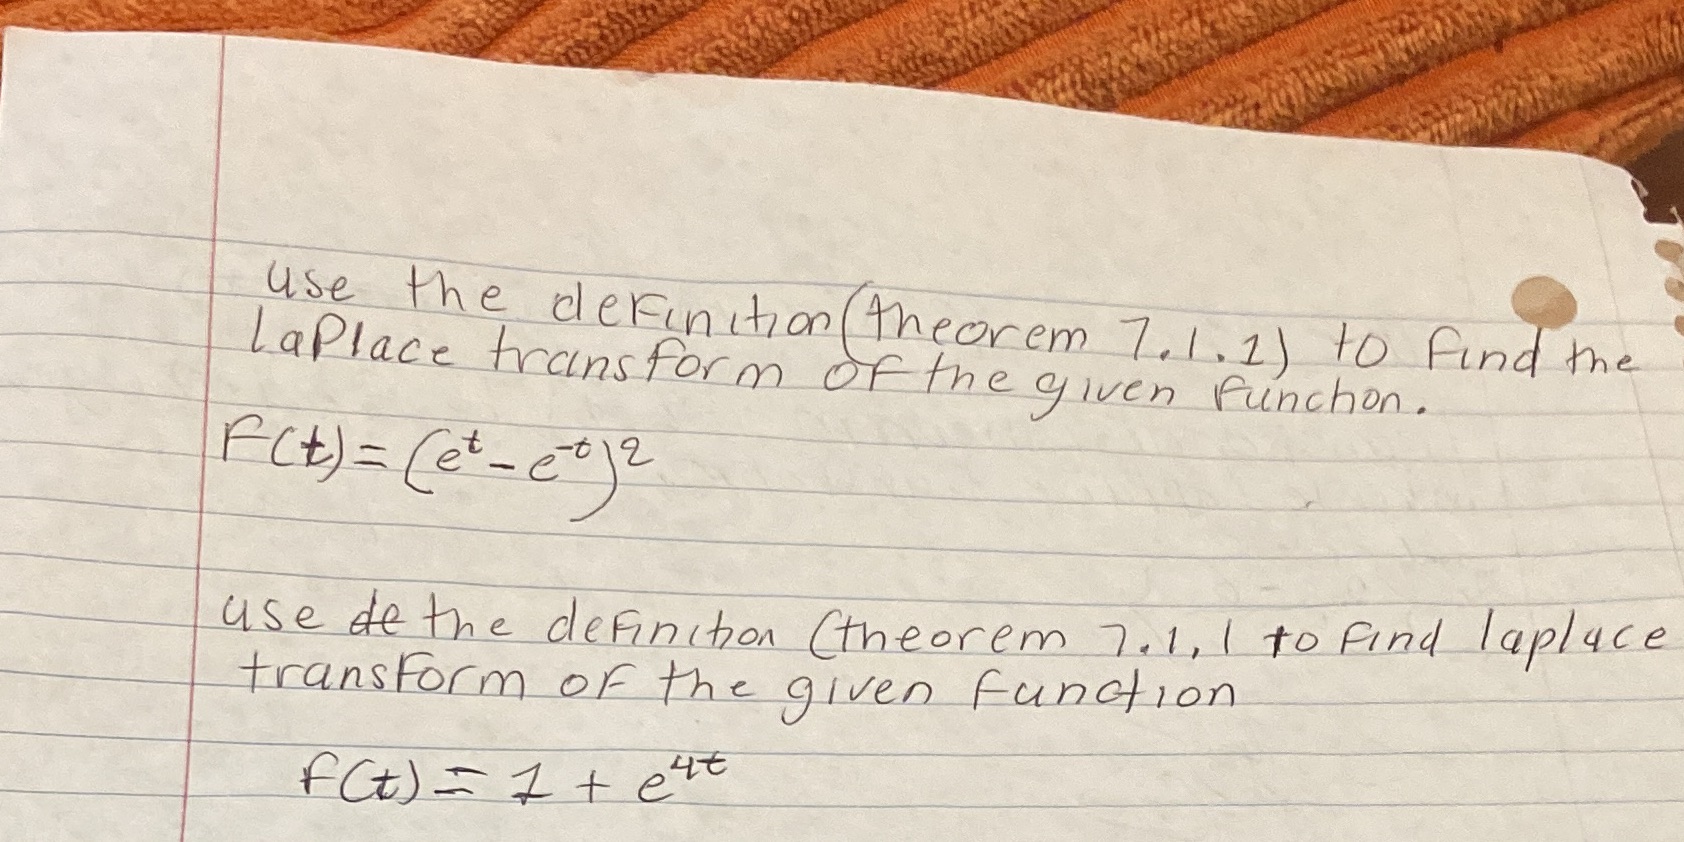 use the definition (theorem 7.1.1) to find the
Laplace transform of the given function.
F(t) = (e^t - e^-t)^2
use de the definition (theorem 7.1.1 to find laplace
transform of the given function
f(t) = 1 + e^4t